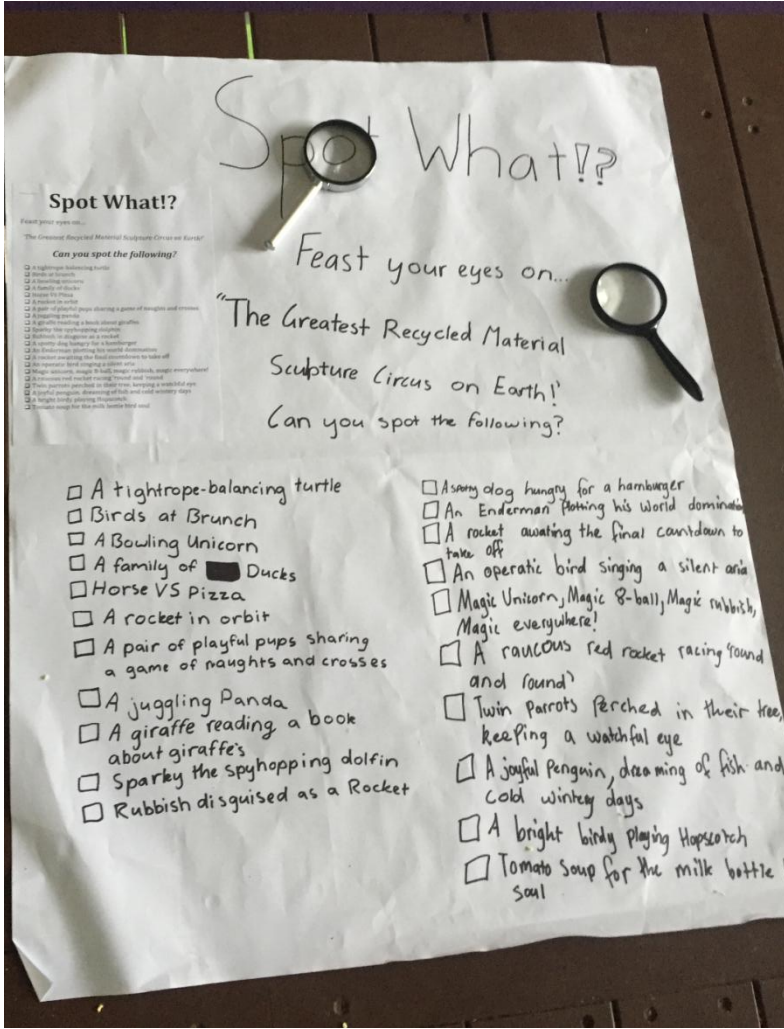 Spot What!?
Spot What!?
Feast your eyes on...
"The Greatest Recycled Material Sculpture Circus on Earth!"
Can you spot the following?
A tightrope balancing turtle
Birds at brunch
A bowling unicorn
A family of ducks
Horse VS Pizza
A rocket in orbit
A pair of playful pups sharing a game of naughts and crosses
A juggling panda
A giraffe reading a book about giraffes
Sparky the spyhopping dolphin
Rubbish in disguise as a rocket
A spotty dog hungry for a hamburger
An Enderman plotting his world domination
A rocket awaiting the final countdown to take off
An operatic bird singing a silent aria
Magic unicorn, magic 8-ball, magic rubbish, magic everywhere!
A raucous red rocket racing 'round and 'round
Twin parrots perched in their tree, keeping a watchful eye
A joyful penguin, dreaming of fish and cold wintery days
A bright birdy playing Hopscotch
Tomato soup for the milk bottle bird soul
Feast your eyes on...
"The Greatest Recycled Material
Sculpture Circus on Earth!"
Can you spot the following?
A tightrope-balancing turtle
Birds at Brunch
A Bowling Unicorn
A family of Ducks
Horse VS Pizza
A rocket in orbit
A pair of playful pups sharing
a game of naughts and crosses
A juggling Panda
A giraffe reading a book
about giraffe's
Sparky the spyhopping dolfin
Rubbish disguised as a Rocket
A spotty dog hungry for a hamburger
An Enderman Plotting his world domination
A rocket awating the final countdown to
take off
An operatic bird singing a silent aria
Magic Unicorn, Magic 8-ball, Magic rubbish,
Magic everywhere!
A raucous red rocket racing 'round
and round'
Twin Parrots Perched in their tree,
keeping a watchful eye
A joyful Penguin, dreaming of fish and
cold wintery days
A bright birdy playing Hopscotch
Tomato Soup for the milk bottle
soul